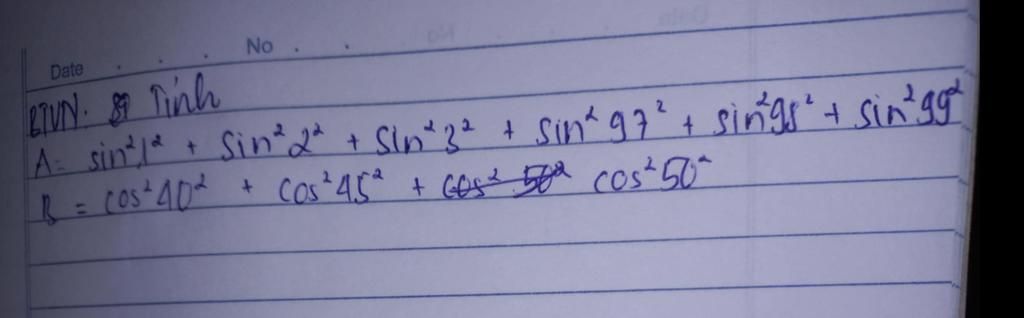 Date . . . No . .
BTVN. Tính
A = sin²1² + sin²2² + sin²3² + sin²97² + sin²98² + sin²99²
B = cos²40² + cos²45² + cos²50²